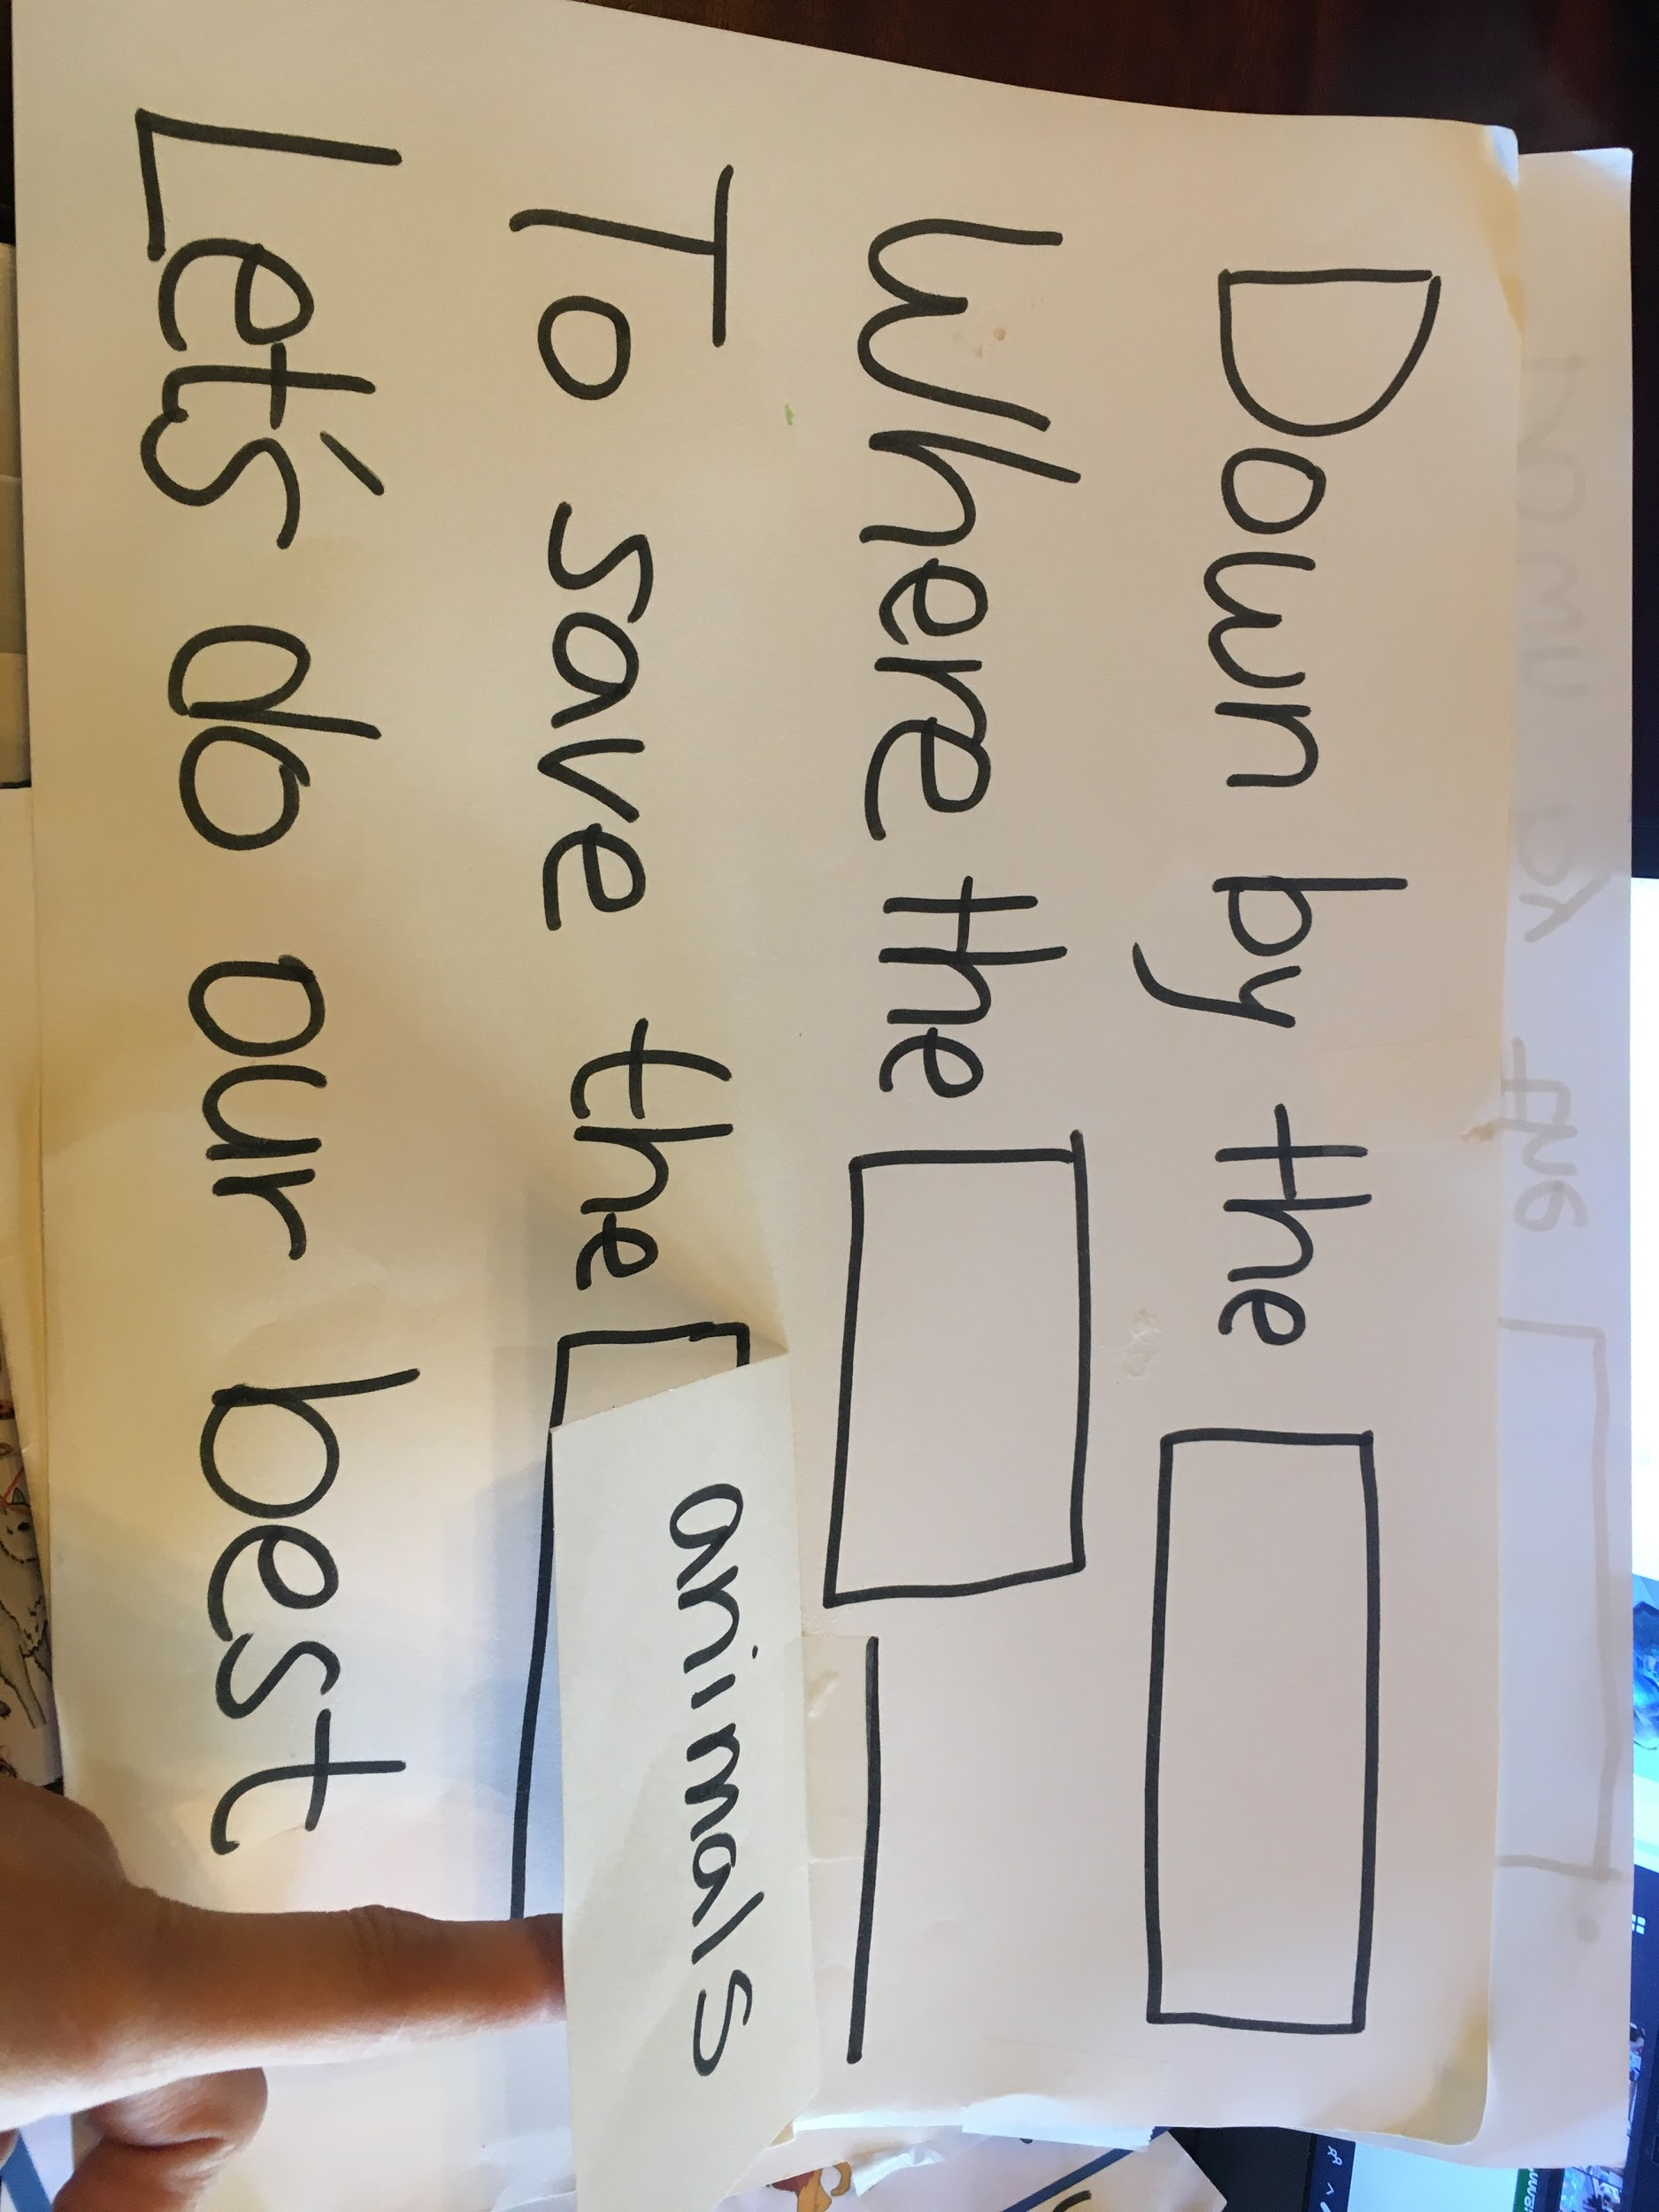 Down by the
Where the
To save the animals
Let's do our best
Down by the